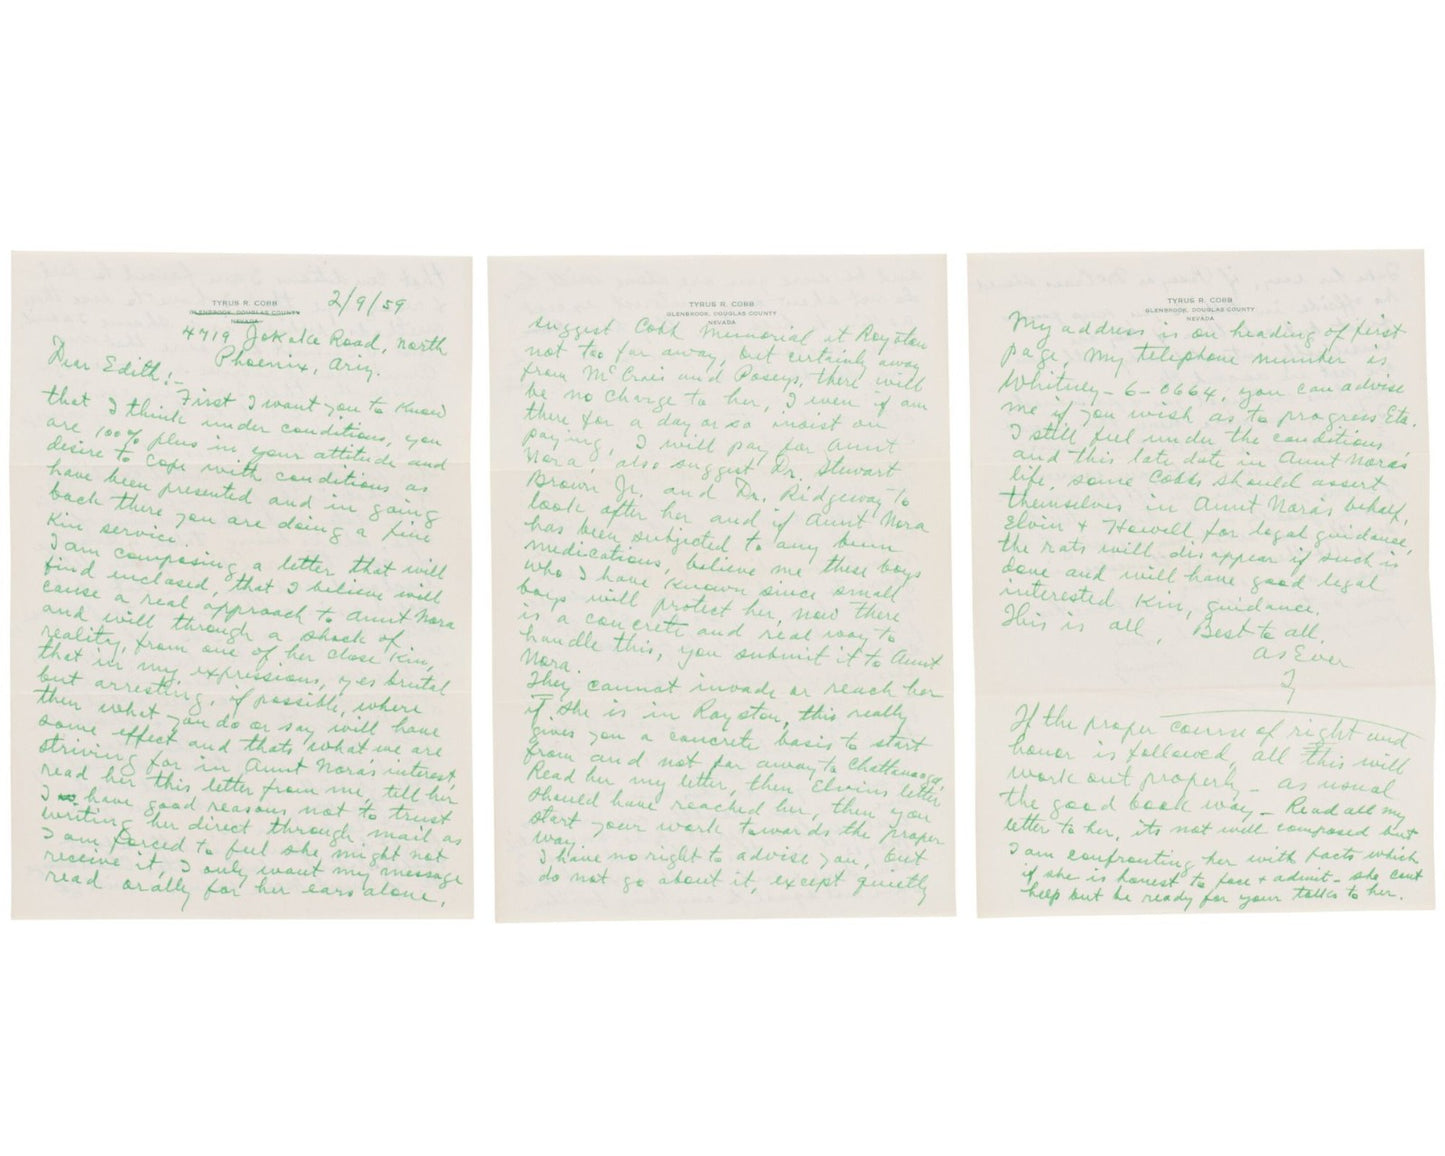 TYRUS R. COBB
GLENBROOK, DOUGLAS COUNTY
NEVADA
2/9/59
4719 Jokake Road, north
Phoenix, Ariz.
Dear Edith:-
First I want you to know
that I think under conditions, you
are 100% plus in your attitude and
desire to cope with conditions as
have been presented and in going
back there you are doing a fine
Kin service.
I am composing a letter that will
find inclosed, that I believe will
cause a real approach to Aunt Nora
and will through a shock of
reality, from one of her close Kin,
that in my expressions, yes brutal
but arresting, if possible, where
then what you do or say will have
some effect and thats what we are
striving for in Aunt Nora's interest,
read her this letter from me, tell her
I have good reasons not to trust
writing her direct through mail as
I am forced to feel she might not
receive it, I only want my message
read orally for her ears alone,
TYRUS R. COBB
GLENBROOK, DOUGLAS COUNTY
NEVADA
suggest Cobb Memorial at Royston
not too far away, but certainly away
from McCrais and Poseys, there will
be no charge to her, I even if am
there for a day or so insist on
paying, I will pay for Aunt
Nora, also suggest Dr. Stewart
Brown Jr. and Dr. Ridgeway to
look after her and if Aunt Nora
has been subjected to any bum
medications, believe me these boys
who I have known since small
boys will protect her, now there
is a concrete and real way to
handle this, you submit it to Aunt
Nora.
They cannot invade or reach her
if she is in Royston, this really
gives you a concrete basis to start
from and not far away to Chattanooga,
Read her my letter, then Elvins letter
should have reached her, then you
start your work towards the proper
way.
I have no right to advise you, but
do not go about it, except quietly
TYRUS R. COBB
GLENBROOK, DOUGLAS COUNTY
NEVADA
My address is on heading of first
page, my telephone number is
Whitney-6-0664, you can advise
me if you wish as to progress Etc.
I still feel under the conditions
and this late date in Aunt Nora's
life, some Cobbs should assert
themselves in Aunt Nora's behalf,
Elvin & Howell for legal guidance,
the rats will disappear if such is
done and will have good legal
interested Kin, guidance.
This is all, Best to all.
As Ever
Ty
If the proper course of right and
honor is followed, all this will
work out properly - as usual
the good book way - Read all my
letter to her, its not well composed but
I am confronting her with facts which
if she is honest to face & admit - she cant
help but be ready for your talks to her.